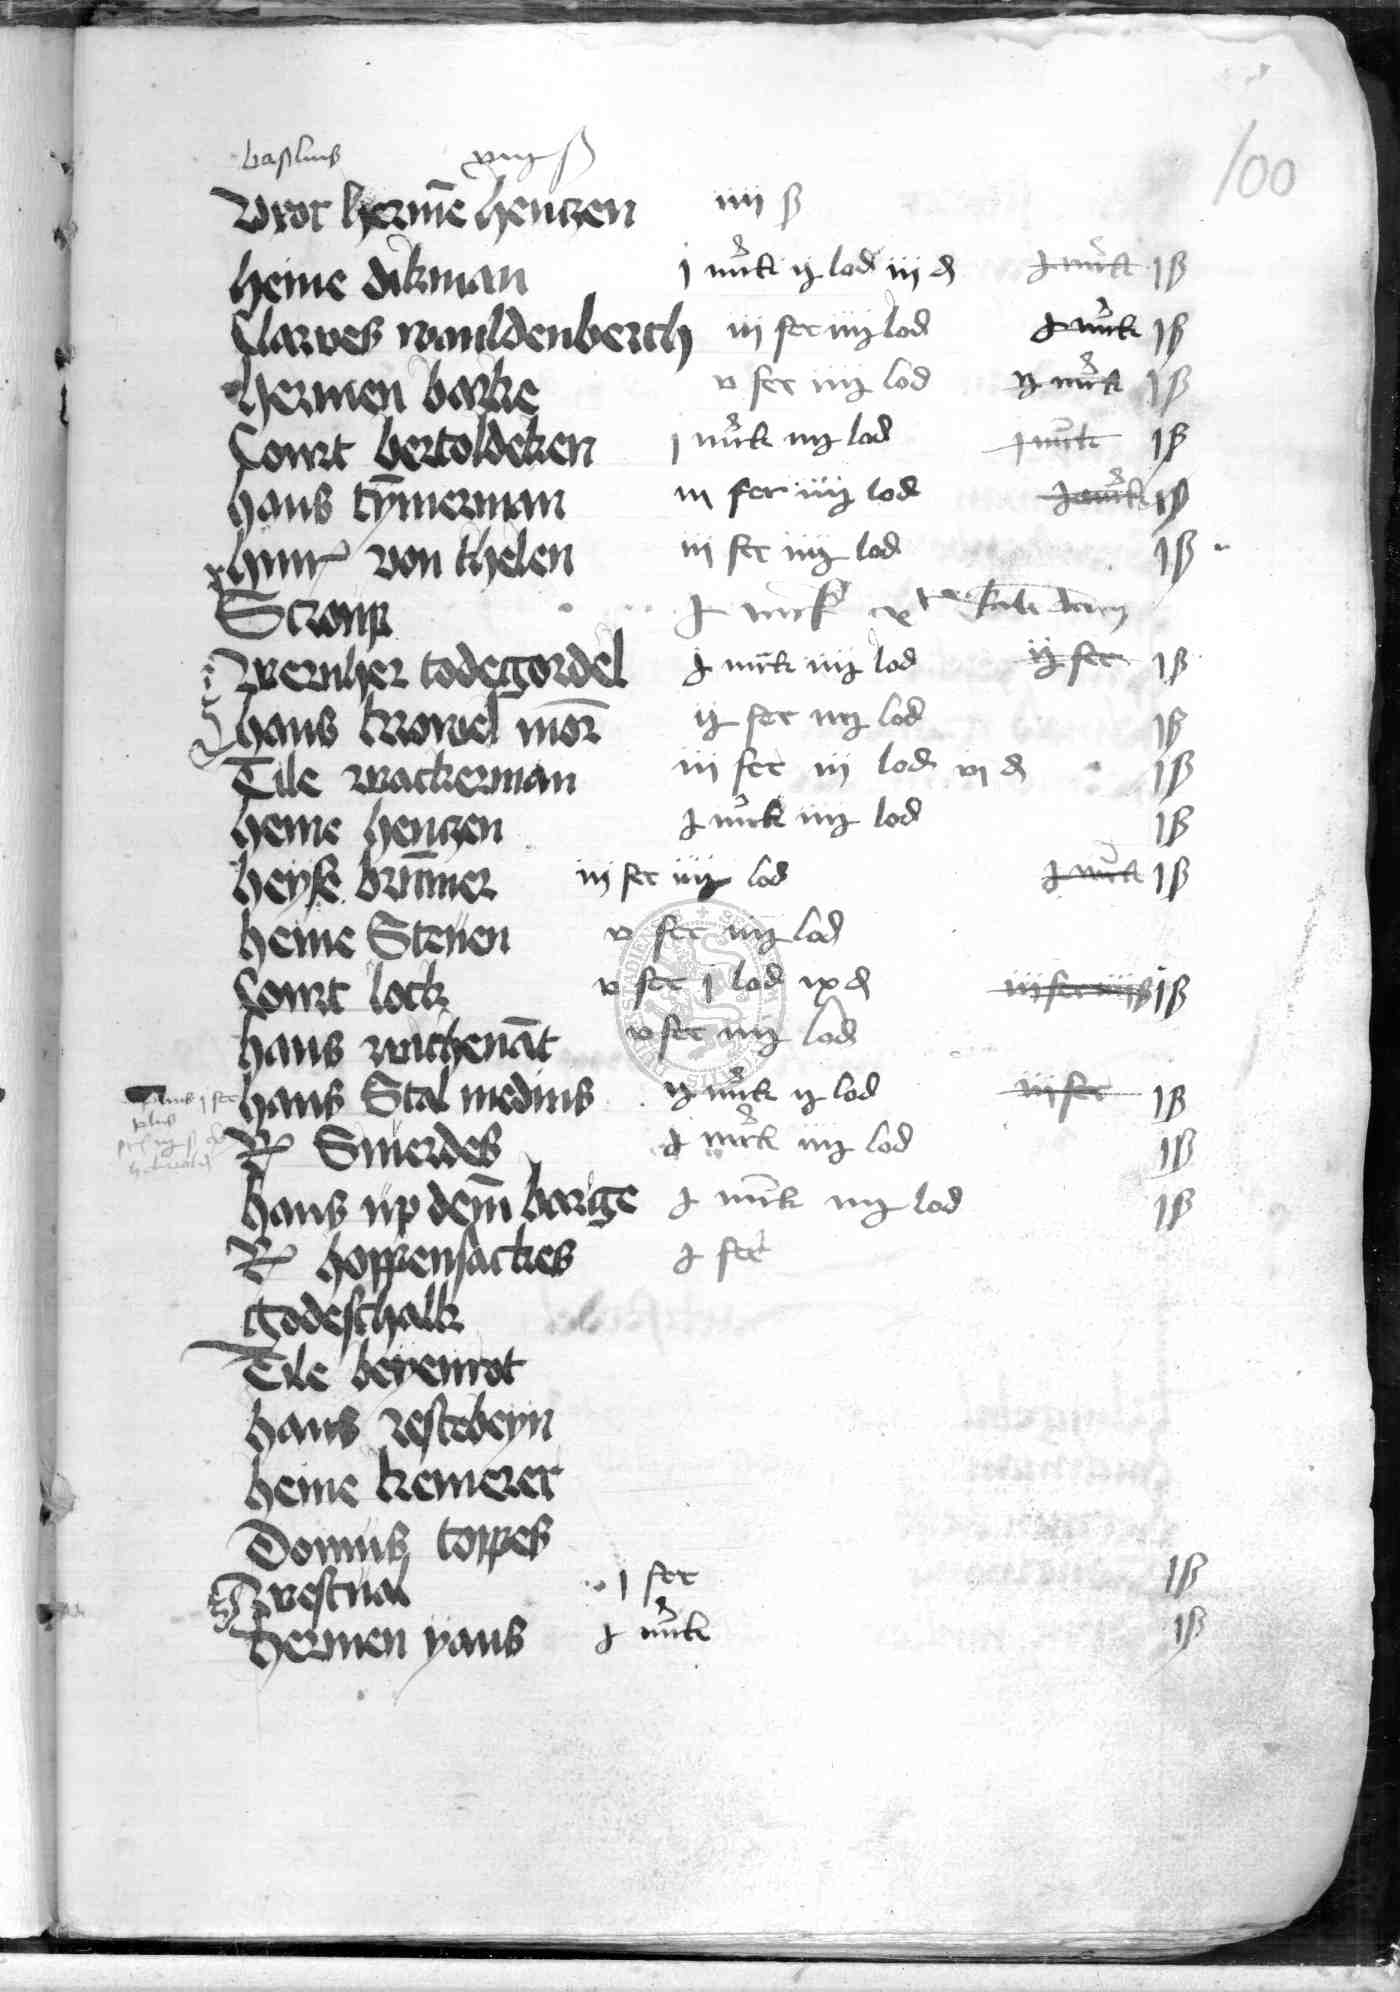 100
Uxor herme hentzen iiij ß
heine dikman j mrk ij lod iij d j mrk j ß
Clawes wanildenberch iij fer iiij lod j mrk j ß
hermen barke v fer iiij lod ij mrk j ß
Comrt bertoldeken j mrk iiij lod j mrk j ß
hans tymerman iij fer iiij lod j mrk j ß
hinr von thelen iij fer iiij lod j ß
Stromp j mrk
wernher todegordel j mrk iiij lod ij fer j ß
hans krowel ij fer iiij lod j ß
Tile wackerman iij fer iij lod vi d j ß
heine hentzen j mrk iiij lod j ß
heyse brumer iij fer iiij lod j mrk j ß
heine Steuen v fer iiij lod
Comrt lock v fer j lod ix d j ß
hans witthenat v fer iiij lod
hans Stal medius ij mrk ij lod iij fer j ß
R Smerdes j mrk iiij lod j ß
hans up dem barge j mrk iiij lod j ß
R hoppensackes j fer
godeschalk
Tile beyenrot
hans restebeyn
heine kemerer
Domus toppes
westual j fer j ß
hermen yans j mrk j ß